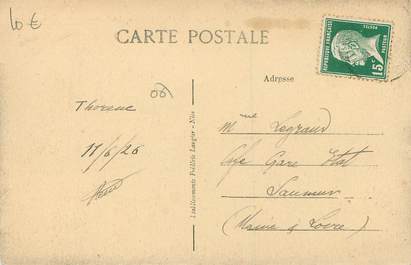 10 €
CARTE POSTALE
REPUBLIQUE FRANÇAISE
15c
POSTES
Adresse
06
Thorenc
11/6/26
Etablissements Frédéric Laugier - Nice
Mme Legrand
Café Gare Etat
Saumur
(Maine & Loire)